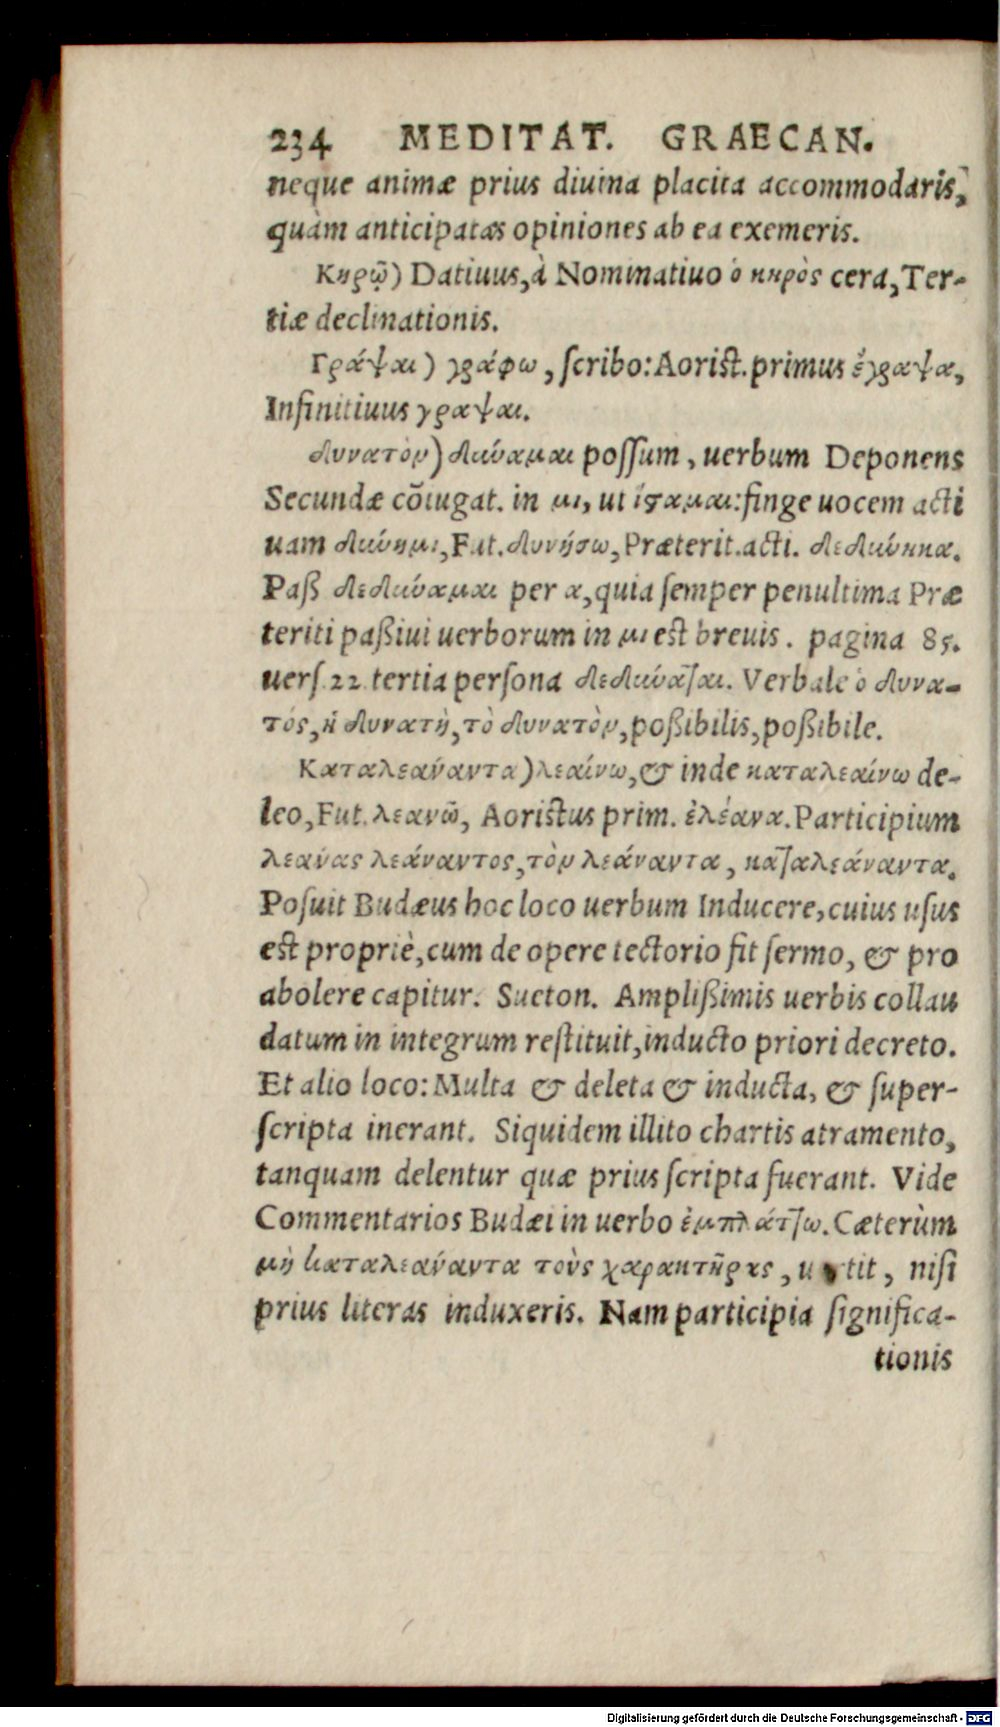 234 MEDITAT. GRAECAN.
neque animæ prius diuina placita accommodaris,
quàm anticipatas opiniones ab ea exemeris.
Κηρῷ) Datiuus, à Nominatiuo ὁ κηρὸς cera, Ter-
tiæ declinationis.
Γράψαι) γράφω, ſcribo: Aoriſt. primus ἔγραψα,
Infinitiuus γραψαι.
δυνατὸν) δύναμαι poſſum, uerbum Deponens
Secundæ cōiugat. in μι, ut ἵσταμαι: finge uocem acti
uam δύνημι, Fut. δυνήσω, Præterit. acti. δεδύνηκα.
Paſß δεδύναμαι per α, quia ſemper penultima Præ
teriti paßiui uerborum in μι eſt breuis. pagina 85.
uerſ. 22. tertia perſona δεδύναται. Verbale ὁ δυνα-
τός, ἡ δυνατὴ, τὸ δυνατὸν, poßibilis, poßibile.
Καταλεαναντα) λεαίνω, & inde καταλεαίνω de-
leo, Fut. λεανῶ, Aoriſtus prim. ἐλέανα. Participium
λεάνας λεάναντος, τὸν λεάναντα, καταλεάναντα.
Poſuit Budæus hoc loco uerbum Inducere, cuius uſus
eſt propriè, cum de opere tectorio fit ſermo, & pro
abolere capitur. Sueton. Amplißimis uerbis collau
datum in integrum reſtituit, inducto priori decreto.
Et alio loco: Multa & deleta & inducta, & ſuper-
ſcripta inerant. Siquidem illito chartis atramento,
tanquam delentur quæ prius ſcripta fuerant. Vide
Commentarios Budæi in uerbo ἐμπλάττω. Cæterùm
μὴ καταλεάναντα τοὺς χαρακτῆρας, uertit, niſi
prius literas induxeris. Nam participia ſignifica-
tionis
Digitalisierung gefördert durch die Deutsche Forschungsgemeinschaft - DFG